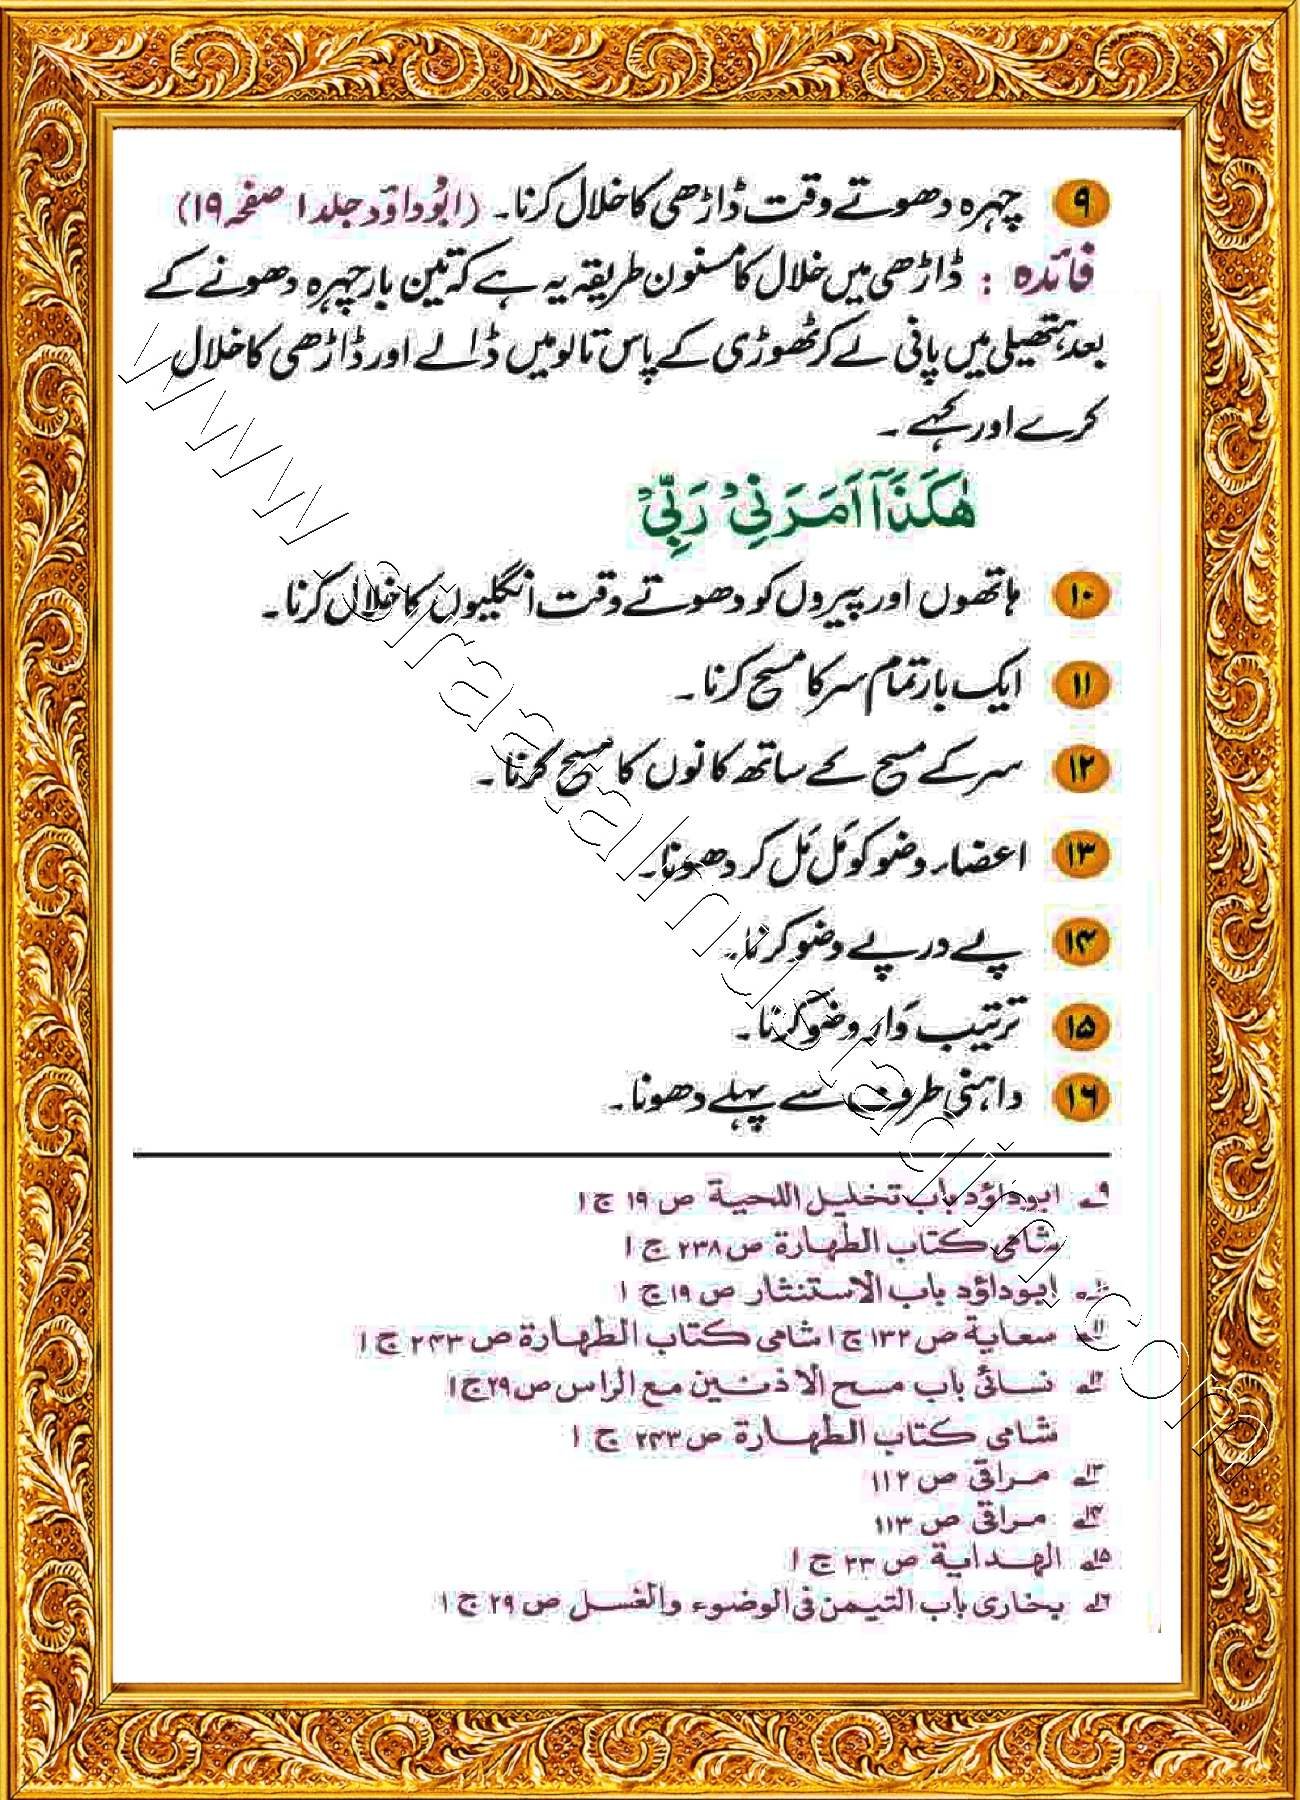 ۹ چہرہ دھوتے وقت ڈاڑھی کا خلال کرنا۔ (ابوُداوٗد جلد ۱ صفحہ ۱۹)
فائدہ : ڈاڑھی میں خلال کا مسنون طریقہ یہ ہے کہ تین بار چہرہ دھونے کے
بعد ہتھیلی میں پانی لے کر ٹھوڑی کے پاس تالو میں ڈالے اور ڈاڑھی کا خلال
کرے اور کہے ۔
هٰكَذَآ اَمَرَنِیْ رَبِّیْ
۱۰ ہاتھوں اور پیروں کو دھوتے وقت انگلیوں کا خلال کرنا۔
۱۱ ایک بار تمام سر کا مسح کرنا۔
۱۲ سر کے مسح کے ساتھ کانوں کا مسح کرنا۔
۱۳ اعضاء وضو کو مَل مَل کر دھونا۔
۱۴ پے درپے وضو کرنا۔
۱۵ ترتیب وَار وضو کرنا۔
۱۶ داہنی طرف سے پہلے دھونا۔
۹؎ ابوداؤد باب تخلیل اللحیة ص ۱۹ ج ۱
شامی کتاب الطهارة ص ۲۳۸ ج ۱
۱۰؎ ابوداؤد باب الاستنثار ص ۱۹ ج ۱
۱۱؎ سعایة ص ۱۳۲ ج ۱ شامی کتاب الطهارة ص ۲۴۳ ج ۱
۱۲؎ نسائی باب مسح الاذنین مع الراس ص ۲۹ ج ۱
شامی کتاب الطهارة ص ۲۴۳ ج ۱
۱۳؎ مراقی ص ۱۱۲
۱۴؎ مراقی ص ۱۱۳
۱۵؎ الهدایة ص ۲۳ ج ۱
۱۶؎ بخاری باب التیمن فی الوضوء والغسل ص ۲۹ ج ۱
www.siraatalmustadiin.com